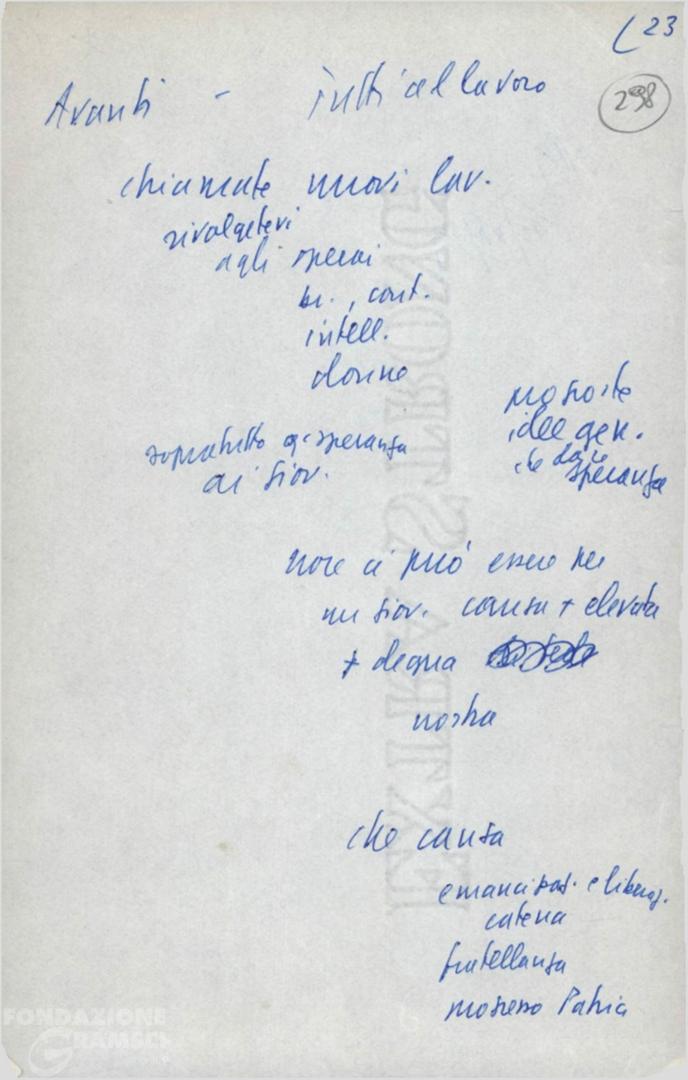 (23
298
Avanti - Tutti al lavoro
chiamate nuovi lav.
rivolgetevi
agli operai
br., cont.
intell.
donne
proposte
idee gen.
che dare
speranza
sopratutto speranza
ai giov.
non ci può essere per
un giov. causa + elevata
+ degna
nostra
che causa
emancipaz. e liberaz.
catena
fratellanza
progresso Patria
EXTRA STRONG
FONDAZIONE
GRAMSCI